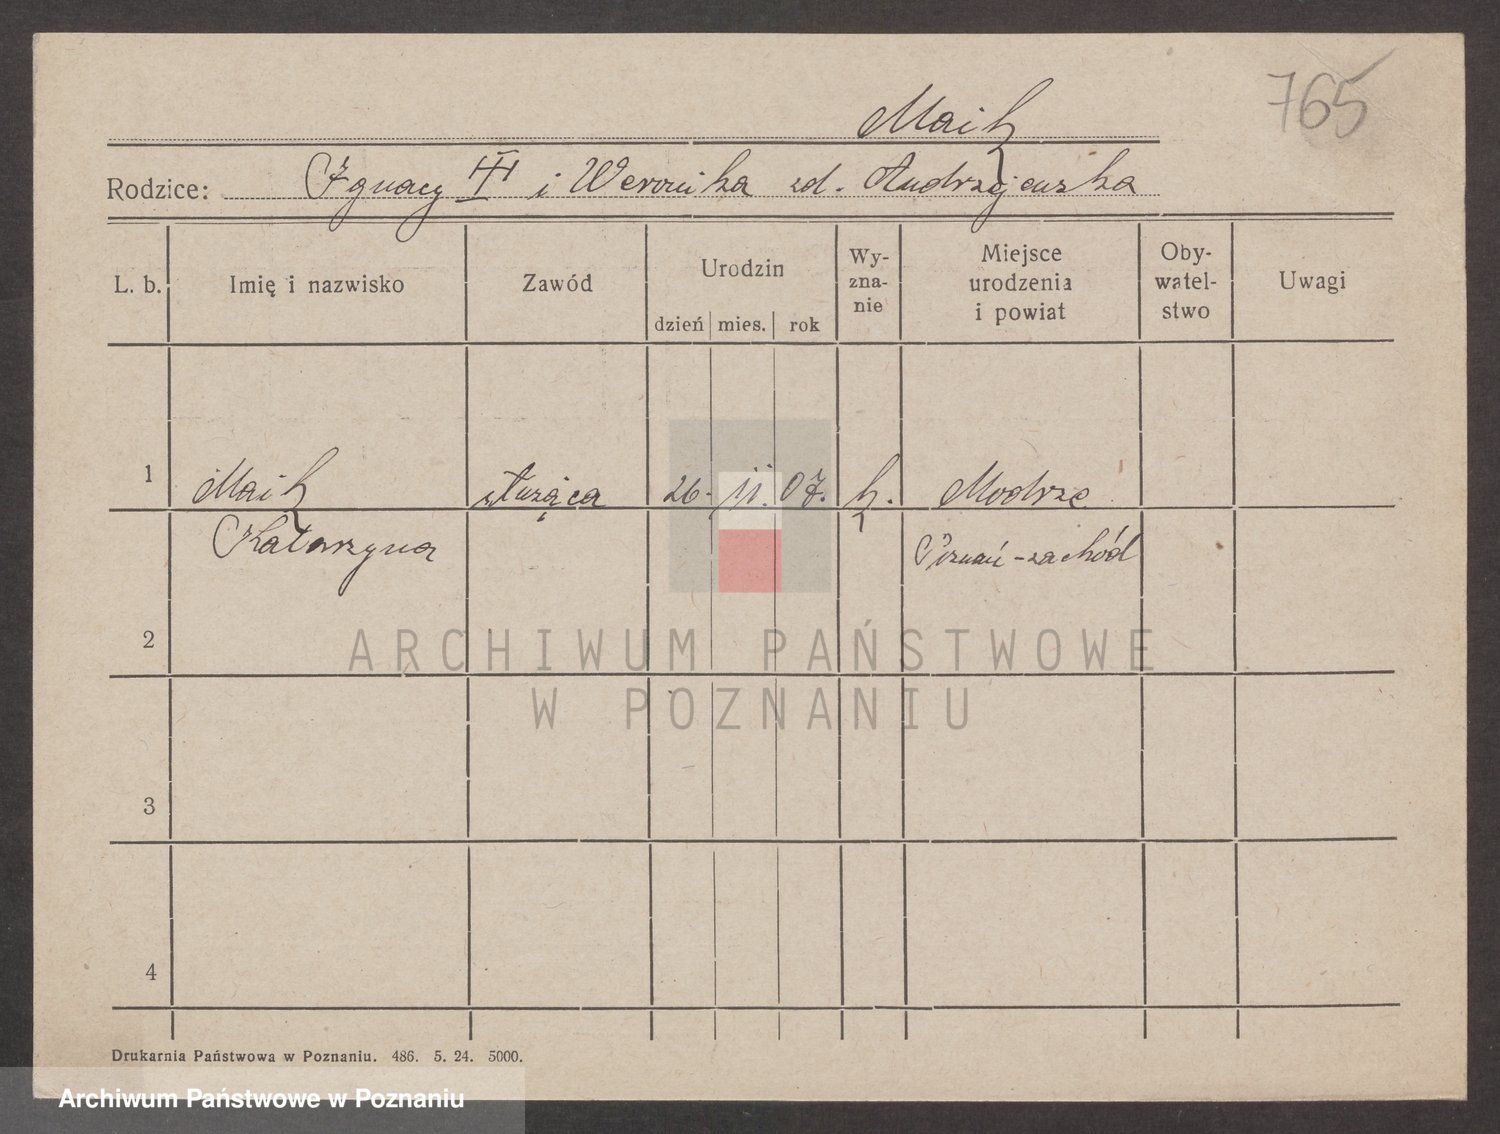 Maik
765
Rodzice: Ignacy † i Weronika zd. Andrzejewska
L. b.
Imię i nazwisko
Zawód
Urodzin
dzień mies. rok
Wy-
zna-
nie
Miejsce
urodzenia
i powiat
Oby-
watel-
stwo
Uwagi
1 Maik służąca 26. 11. 07. k. Modrze
Katarzyna Poznań-zachód
2
3
4
ARCHIWUM PAŃSTWOWE
W POZNANIU
Drukarnia Państwowa w Poznaniu. 486. 5. 24. 5000.
Archiwum Państwowe w Poznaniu